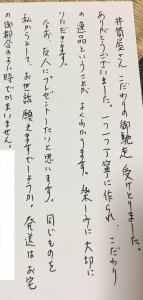 井筒屋さん こだわりの御馳走 受けとりました。
ありがとうございました。一つ一つ丁寧に作られ、こだわり
の逸品ということが よくわかります。楽しみに 大切に
いただきます。
なお、友人にプレゼントしたいと思います。同じものを
私からとして、お世話 願えますでしょうか。発送は お宅
の御都合のよい時でかまいません。